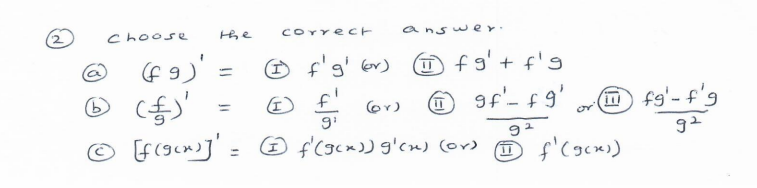 ② choose the correct answer.
ⓐ (fg)' = Ⓘ f'g' (or) Ⓘⓘ fg' + f'g
ⓑ (f/g)' = Ⓘ f'/g' (or) Ⓘⓘ (gf' - fg')/g² or Ⓘⓘⓘ (fg' - f'g)/g²
ⓒ [f(g(x)]' = Ⓘ f'(g(x)) g'(x) (or) Ⓘⓘ f'(g(x))